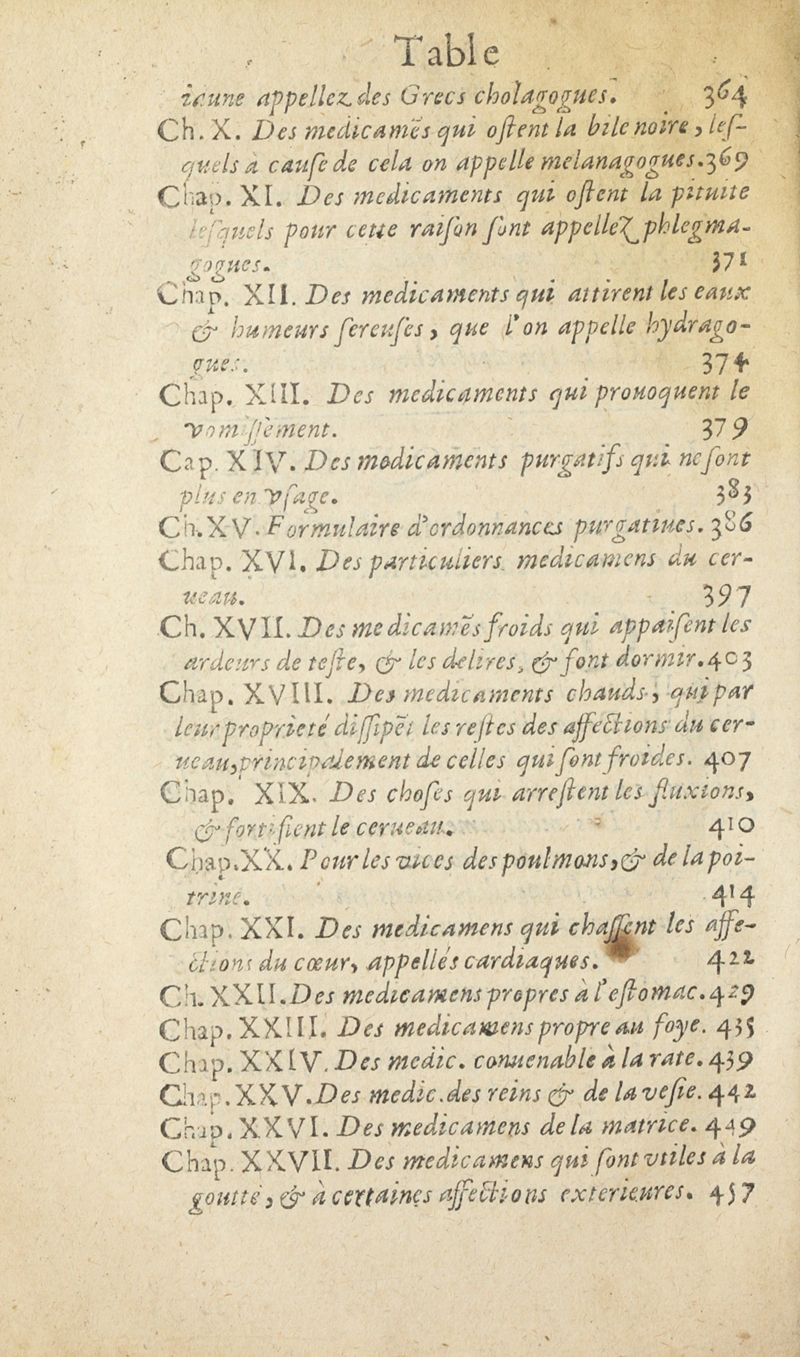 Table
iaune appellez des Grecs cholagogues. 364
Ch. X. Des medicamẽs qui ostent la bile noire, les-
quels à cause de cela on appelle melanagogues. 369
Chap. XI. Des medicaments qui ostent la pituite
lesquels pour cette raison sont appellez phlegma-
gogues. 371
Chap. XII. Des medicaments qui attirent les eaux
& humeurs sereuses, que l'on appelle hydrago-
gues. 374
Chap. XIII. Des medicaments qui prouoquent le
vomissement. 379
Cap. XIV. Des medicaments purgatifs qui ne sont
plus en vsage. 383
Ch. XV. Formulaire d'ordonnances purgatiues. 386
Chap. XVI. Des particuliers medicamens du cer-
ueau. 397
Ch. XVII. Des medicamẽs froids qui appaisent les
ardeurs de teste, & les delires, & font dormir. 403
Chap. XVIII. Des medicaments chauds, qui par
leur proprieté dissipẽt les restes des affections du cer-
ueau, principalement de celles qui sont froides. 407
Chap. XIX. Des choses qui arrestent les fluxions,
& fortifient le cerueau. 410
Chap. XX. Pour les vices des poulmons, & de la poi-
trine. 414
Chap. XXI. Des medicamens qui chassent les affe-
ctions du cœur, appellés cardiaques. 422
Ch. XXII. Des medicamens propres à l'estomac. 429
Chap. XXIII. Des medicamens propre au foye. 435
Chap. XXIV. Des medic. conuenable à la rate. 439
Chap. XXV. Des medic. des reins & de la vesie. 442
Chap. XXVI. Des medicamens de la matrice. 449
Chap. XXVII. Des medicamens qui sont vtiles à la
goutte, & à certaines affections exterieures. 457